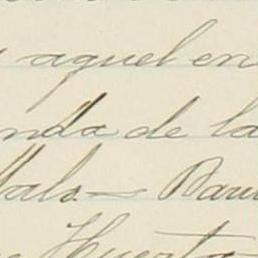 y aquel en
nda de la
als.— Bau
Huerta